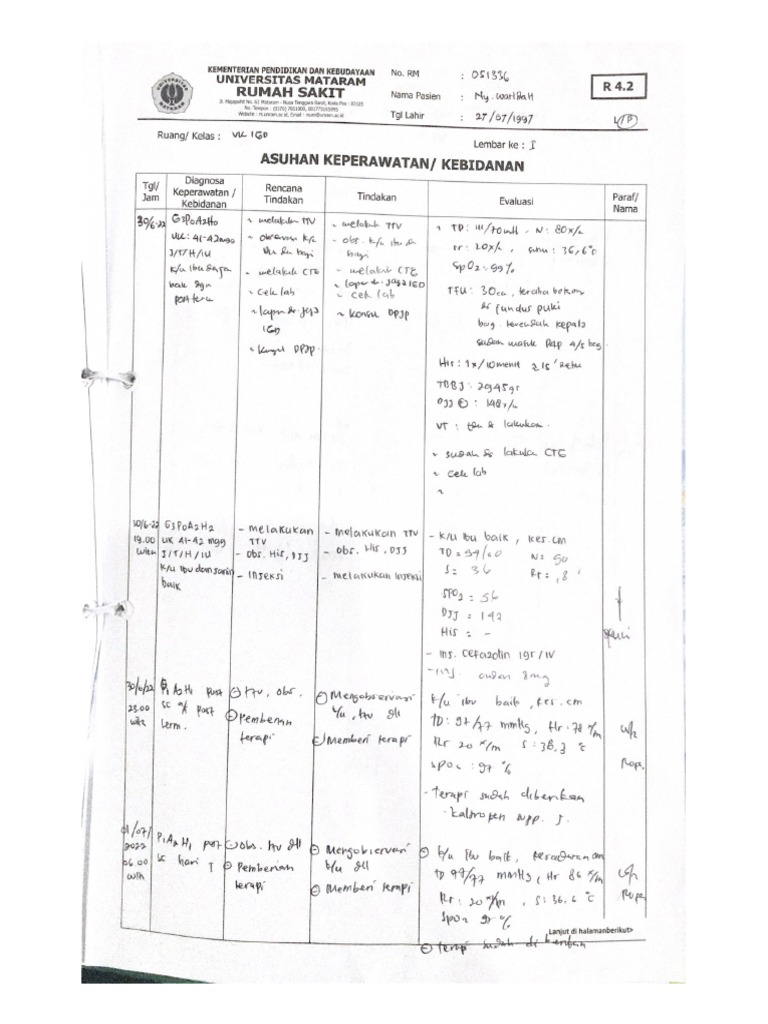 KEMENTERIAN PENDIDIKAN DAN KEBUDAYAAN
UNIVERSITAS MATARAM
RUMAH SAKIT
Jl. Majapahit No. 62 Mataram - Nusa Tenggara Barat, Kode Pos : 83125
No. RM : 051336
Nama Pasien : Ny. Wardah
Tgl Lahir : 27/07/1997
R 4.2
Ruang/ Kelas : VK IGD
Lembar ke : I
ASUHAN KEPERAWATAN/ KEBIDANAN
Tgl/ Jam
Diagnosa Keperawatan / Kebidanan
Rencana Tindakan
Tindakan
Evaluasi
Paraf/ Nama
30/6-22
G3P0A2H0
UK: 41-42 mgg
J/T/H/IU
k/u ibu
baik
- melakukan TTV
- observasi k/u
ibu dan bayi
- melakukan CTG
- Cek lab
- lapor dr. jaga
IGD
- konsul DPJP
- melakukan TTV
- obs. k/u ibu &
bayi
- melakukan CTG
- lapor dr. jaga IGD
- cek lab
- konsul DPJP
- TD: 111/70 N: 80x/m
rr: 20x/m, suhu: 36,6°C
SpO2: 99%
TFU: 30cm, teraba bokong
di fundus
bag. terendah kepala
sudah masuk PAP 4/5 bag
His: 1x/10menit
TBBJ: 2945gr
DJJ : 148x/m
VT : lakukan
- sudah di lakukan CTG
- cek lab
30/6-22
19.00
wita
G3P0A2H2
UK 41-42 mgg
J/T/H/IU
k/u ibu dan janin
baik
- Melakukan
TTV
- Obs. His, DJJ
- Injeksi
- Melakukan TTV
- Obs. His, DJJ
- melakukan Injeksi
- k/u Ibu baik, kes. cm
TD = 99/60
S = 36
SPO2 = 96
DJJ = 142
His = -
- Inj. Cefazolin 1gr/IV
- Inj. 8mg
30/6/22
23.00
wita
P1A2H1 post
SC
- TTV, obs.
- Pemberian
terapi
- Mengobservasi
k/u, ttv dll
- Memberi terapi
k/u ibu baik, kes. cm
TD: 97/77 mmHg, Hr: 78 x/m
Rr 20 x/m S: 36.3 °C
SPO2 : 97 %
- Terapi sudah diberikan
kaltropen supp.
01/07/
2022
06.00
wita
P1A2H1 post
sc hari I
- Obs. ttv dll
- Pemberian
terapi
- Mengobservasi
k/u dll
- Memberi terapi
- k/u ibu baik, kesadaran cm
TD 99/77 mmHg, Hr 86 x/m
Rr: 20 x/m, S: 36.6 °C
SPO2 %
Lanjut di halamanberikut>
- terapi sudah di berikan